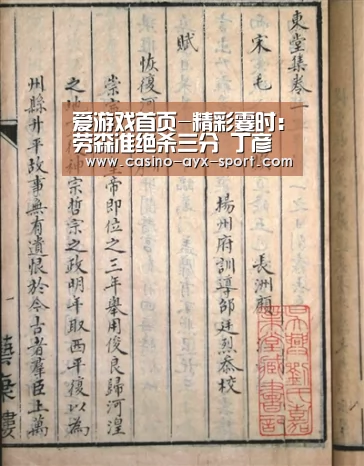 爱游戏首页—精彩霎时:
劳森准绝杀三分 丁彦
www.casino-ayx-sport.com
東堂集卷一
宋毛 長洲顧
揚州府訓導邵廷烈叅校
賦
恢復河
崇 皇帝即位之三年舉用俊良歸河湟
之地 神宗哲宗之政明年取西平復以為
州縣升平故事無有遺恨於今古者羣臣上萬
一
樓
吳興劉氏嘉
業堂藏書印